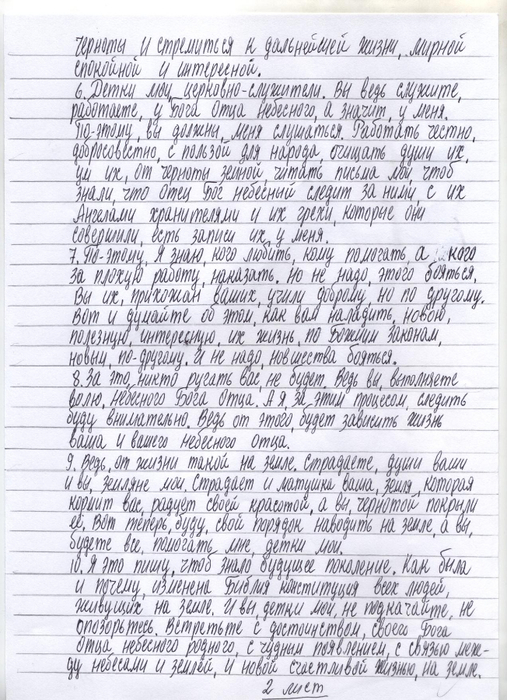 черноты и стремиться к дальнейшей жизни, мирной
спокойной и интересной.
6. Детки мои, церковно-служители. Вы ведь служите,
работаете, у Бога Отца небесного, а значит, у меня.
По-этому, вы должны, меня слушаться. Работать честно,
добросовестно, с пользой для народа, очищать души их,
ум их, от черноты земной, читать письма мои, чтоб
знали, что отец Бог небесный следит за ними, с их
Ангелами хранителями и их грехи, которые они
совершили, есть записи их, у меня.
7. По-этому. Я знаю, кого любить, кому помогать, а кого
за плохую работу, наказать. Но не надо, этого бояться,
Вы их, прихожан ваших, учили доброму, но по другому.
Вот и думайте об этом, как вам наладить, новою,
полезную, интересную, их жизнь, по Божьим законам,
новым, по-другому. И не надо, новшества бояться.
8. За это, никто ругать вас, не будет. Ведь вы, выполняете
волю, небесного Бога Отца. А я, за этим процесом, следить
буду внимательно. Ведь от этого, будет зависить жизнь
ваша и вашего небесного отца.
9. Ведь, от жизни такой на земле. Страдаете, души ваши
и вы, земляне мои. Страдает и матушка ваша, земля, которая
кормит вас, радует своей красотой, а вы, чернотой покрыли
её. Вот теперь, буду, свой порядок наводить на земле, а вы,
будете все, помогать мне, детки мои.
10. Я это пишу, чтоб знало будущее поколение. Как была
и почему, изменена Библия конституция всех людей,
живущих на земле. И вы, детки мои, не подкачайте, не
опозорьтесь. Встретьте с достоинством, своего Бога
Отца небесного родного, с чудным появлением, с связью меж-
ду небесами и землей, и новой счастливой жизнью, на земле.
2 лист